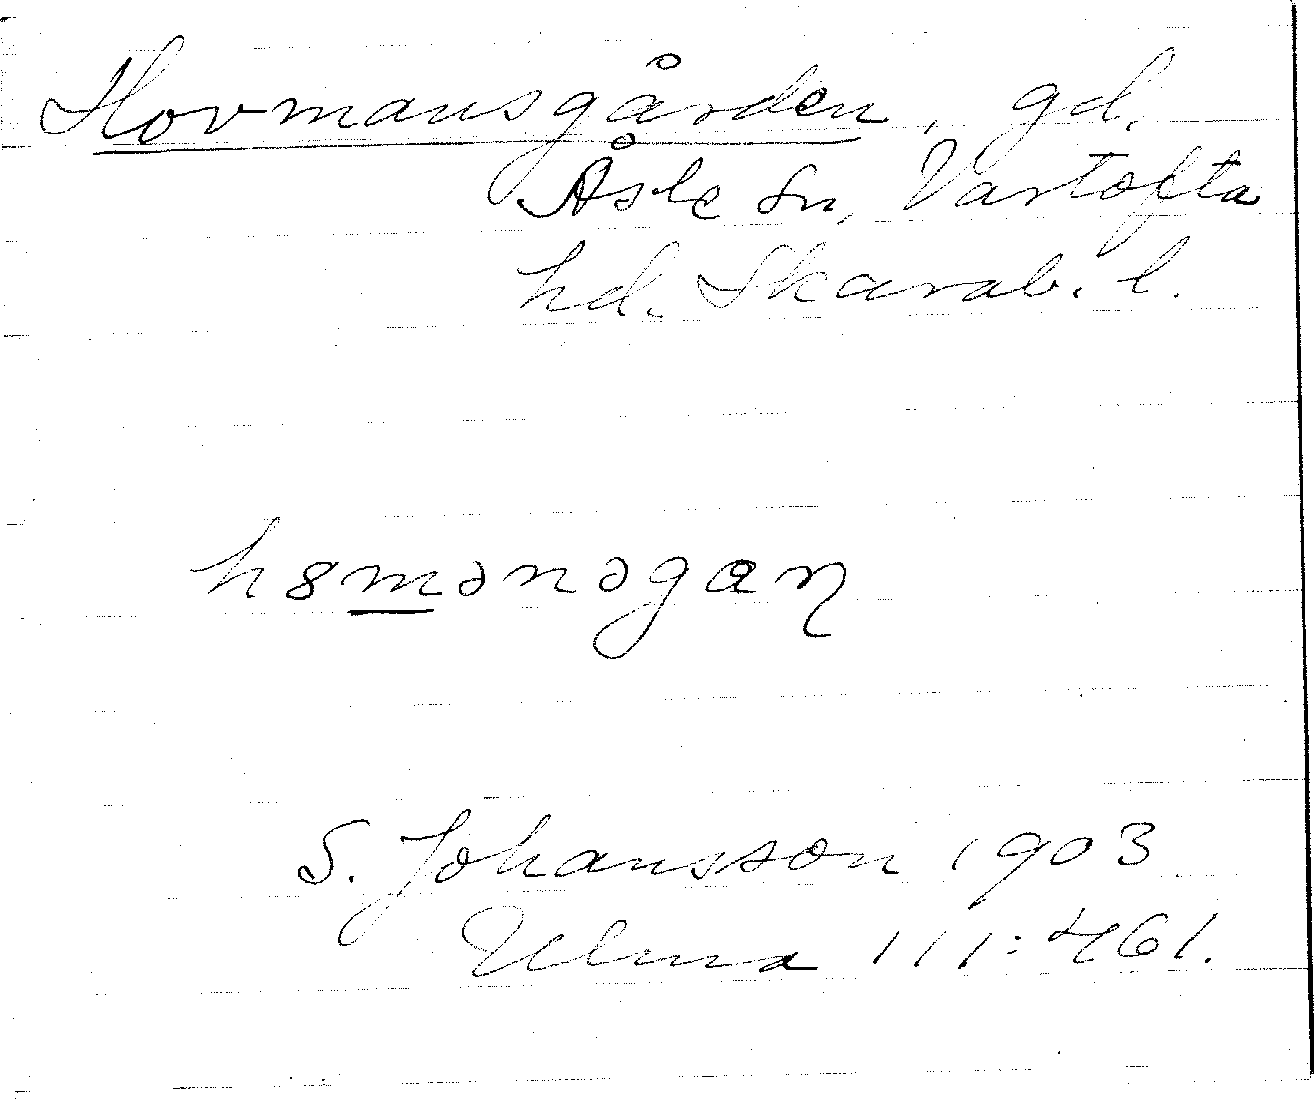 Hovmansgården, gd.
Åsle sn, Vartofta
hd. Skarab. l.
h8mənəgaɳ
S. Johansson 1903
Ulma 111:461.